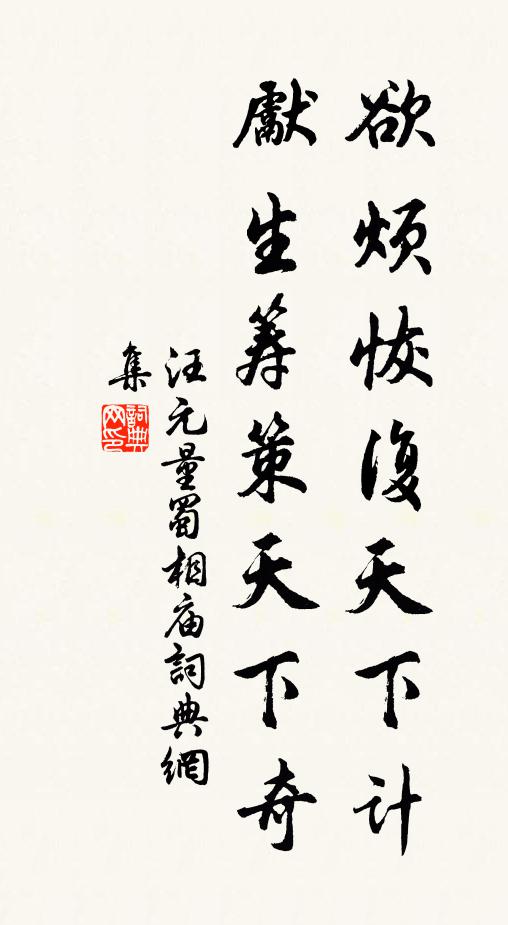 欲烦恢復天下计
獻生筹策天下奇
汪元量蜀相庙詞典網
集
詞典
网印